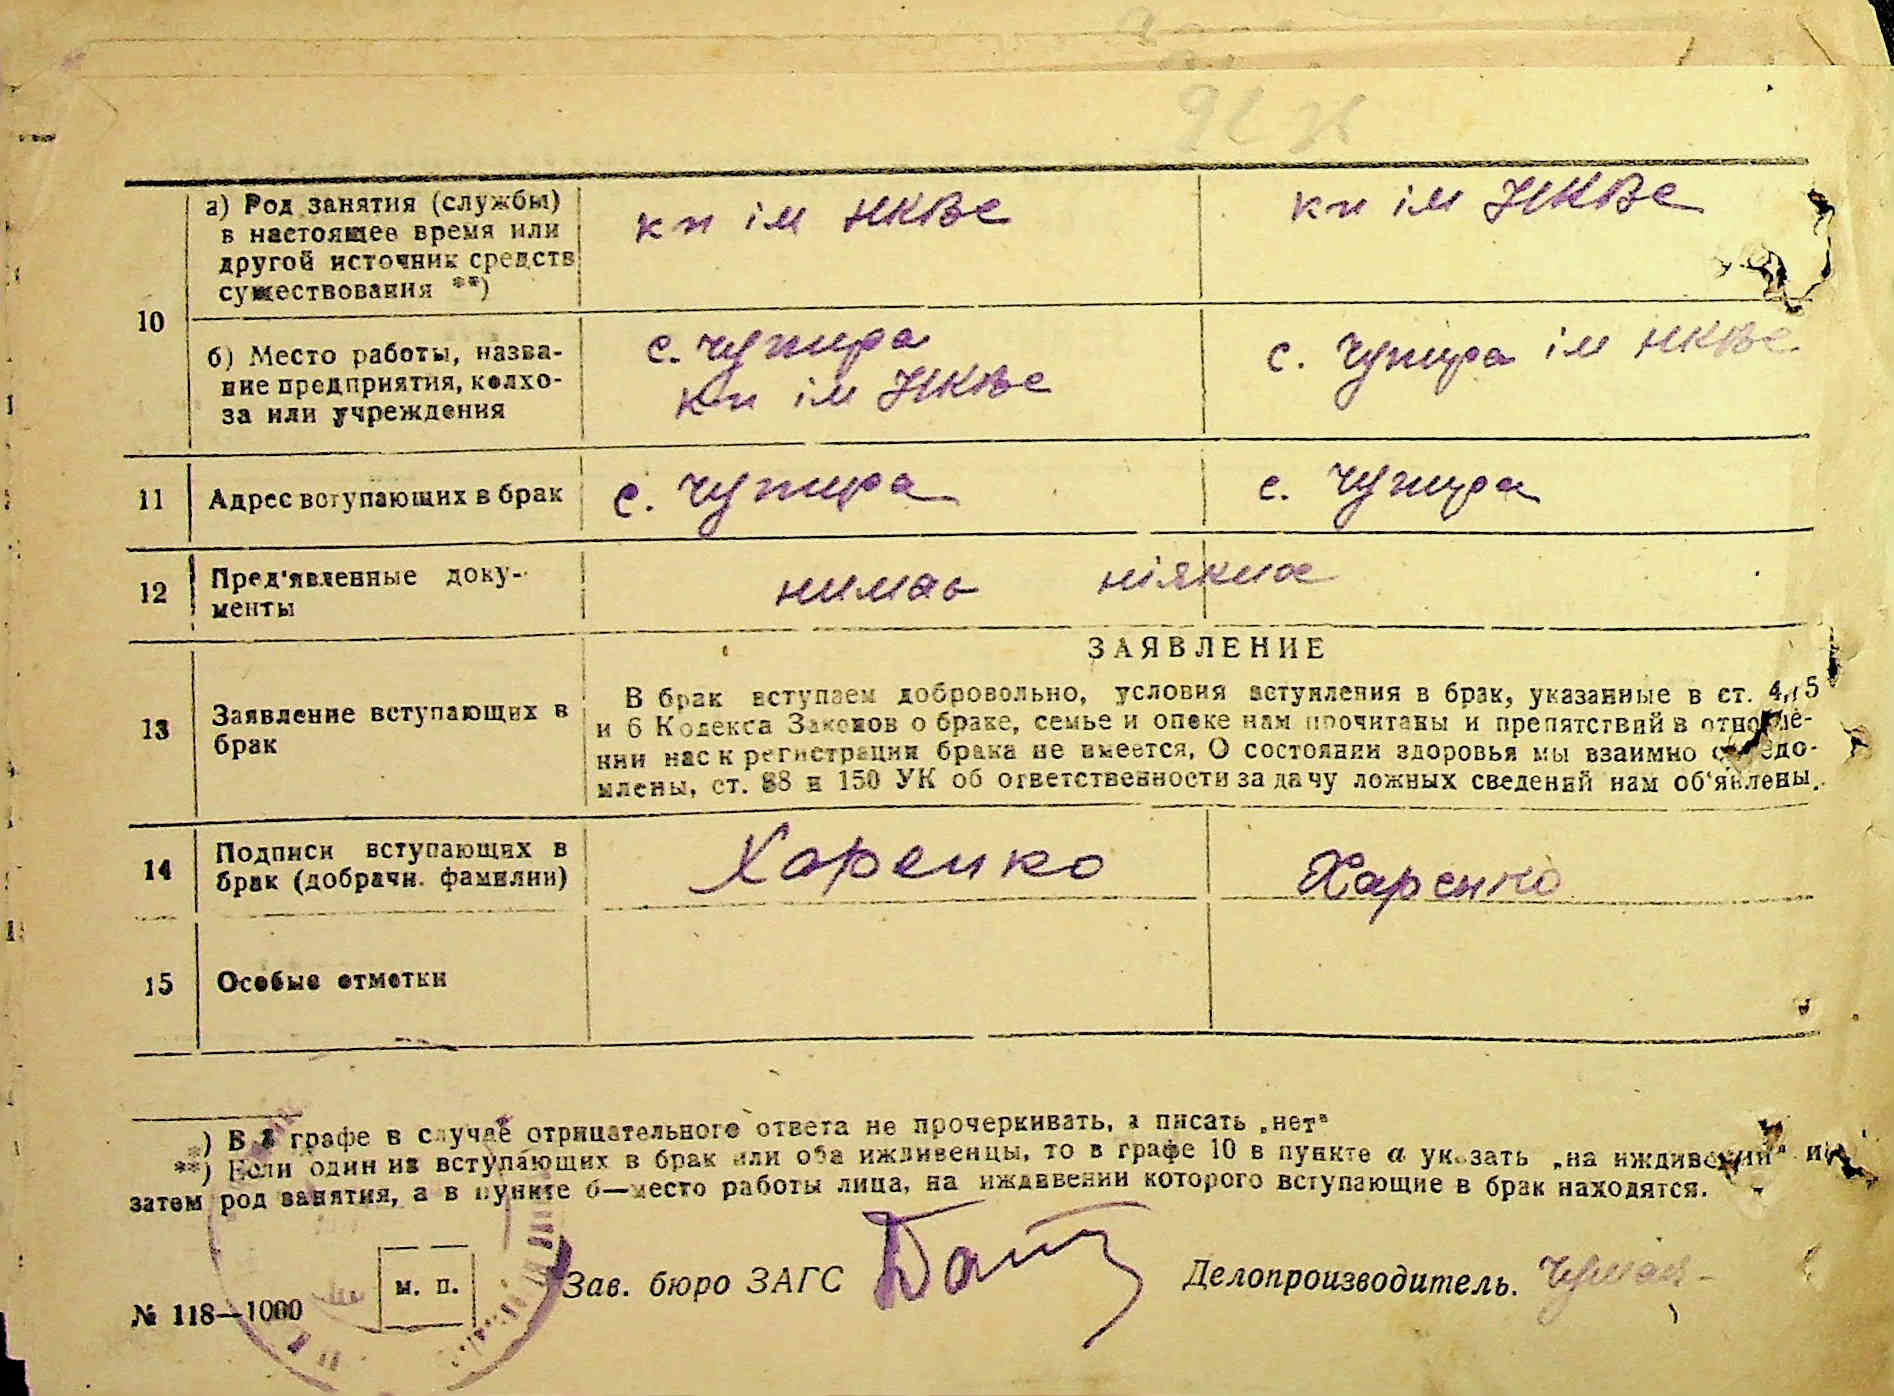 10
а) Род занятия (службы)
в настоящее время или
другой источник средств
существования **)
кп ім НКВС
кп ім НКВС
б) Место работы, назва-
ние предприятия, колхо-
за или учреждения
с. Чупира
кп ім НКВС
с. Чупира ім НКВС
11
Адрес вступающих в брак
с. Чупира
с. Чупира
12
Пред'явленные доку-
менты
нимає ніяких
13
Заявление вступающих в
брак
ЗАЯВЛЕНИЕ
В брак вступаем добровольно, условия вступления в брак, указанные в ст. 4, 5
и 6 Кодекса Законов о браке, семье и опеке нам прочитаны и препятствий в отноше-
нии нас к регистрации брака не имеется, О состоянии здоровья мы взаимно осведо-
млены, ст. 88 и 150 УК об ответственности за дачу ложных сведений нам об'явлены.
14
Подписи вступающих в
брак (добрачн. фамилии)
Харенко
Харенко
15
Особые отметки
*) В графе в случае отрицательного ответа не прочеркивать, а писать „нет"
**) Если один из вступающих в брак или оба иждивенцы, то в графе 10 в пункте а указать „на иждивении" и
затем род занятия, а в пункте б—место работы лица, на иждивении которого вступающие в брак находятся.
м. п.
Зав. бюро ЗАГС
Делопроизводитель.
№ 118—1000